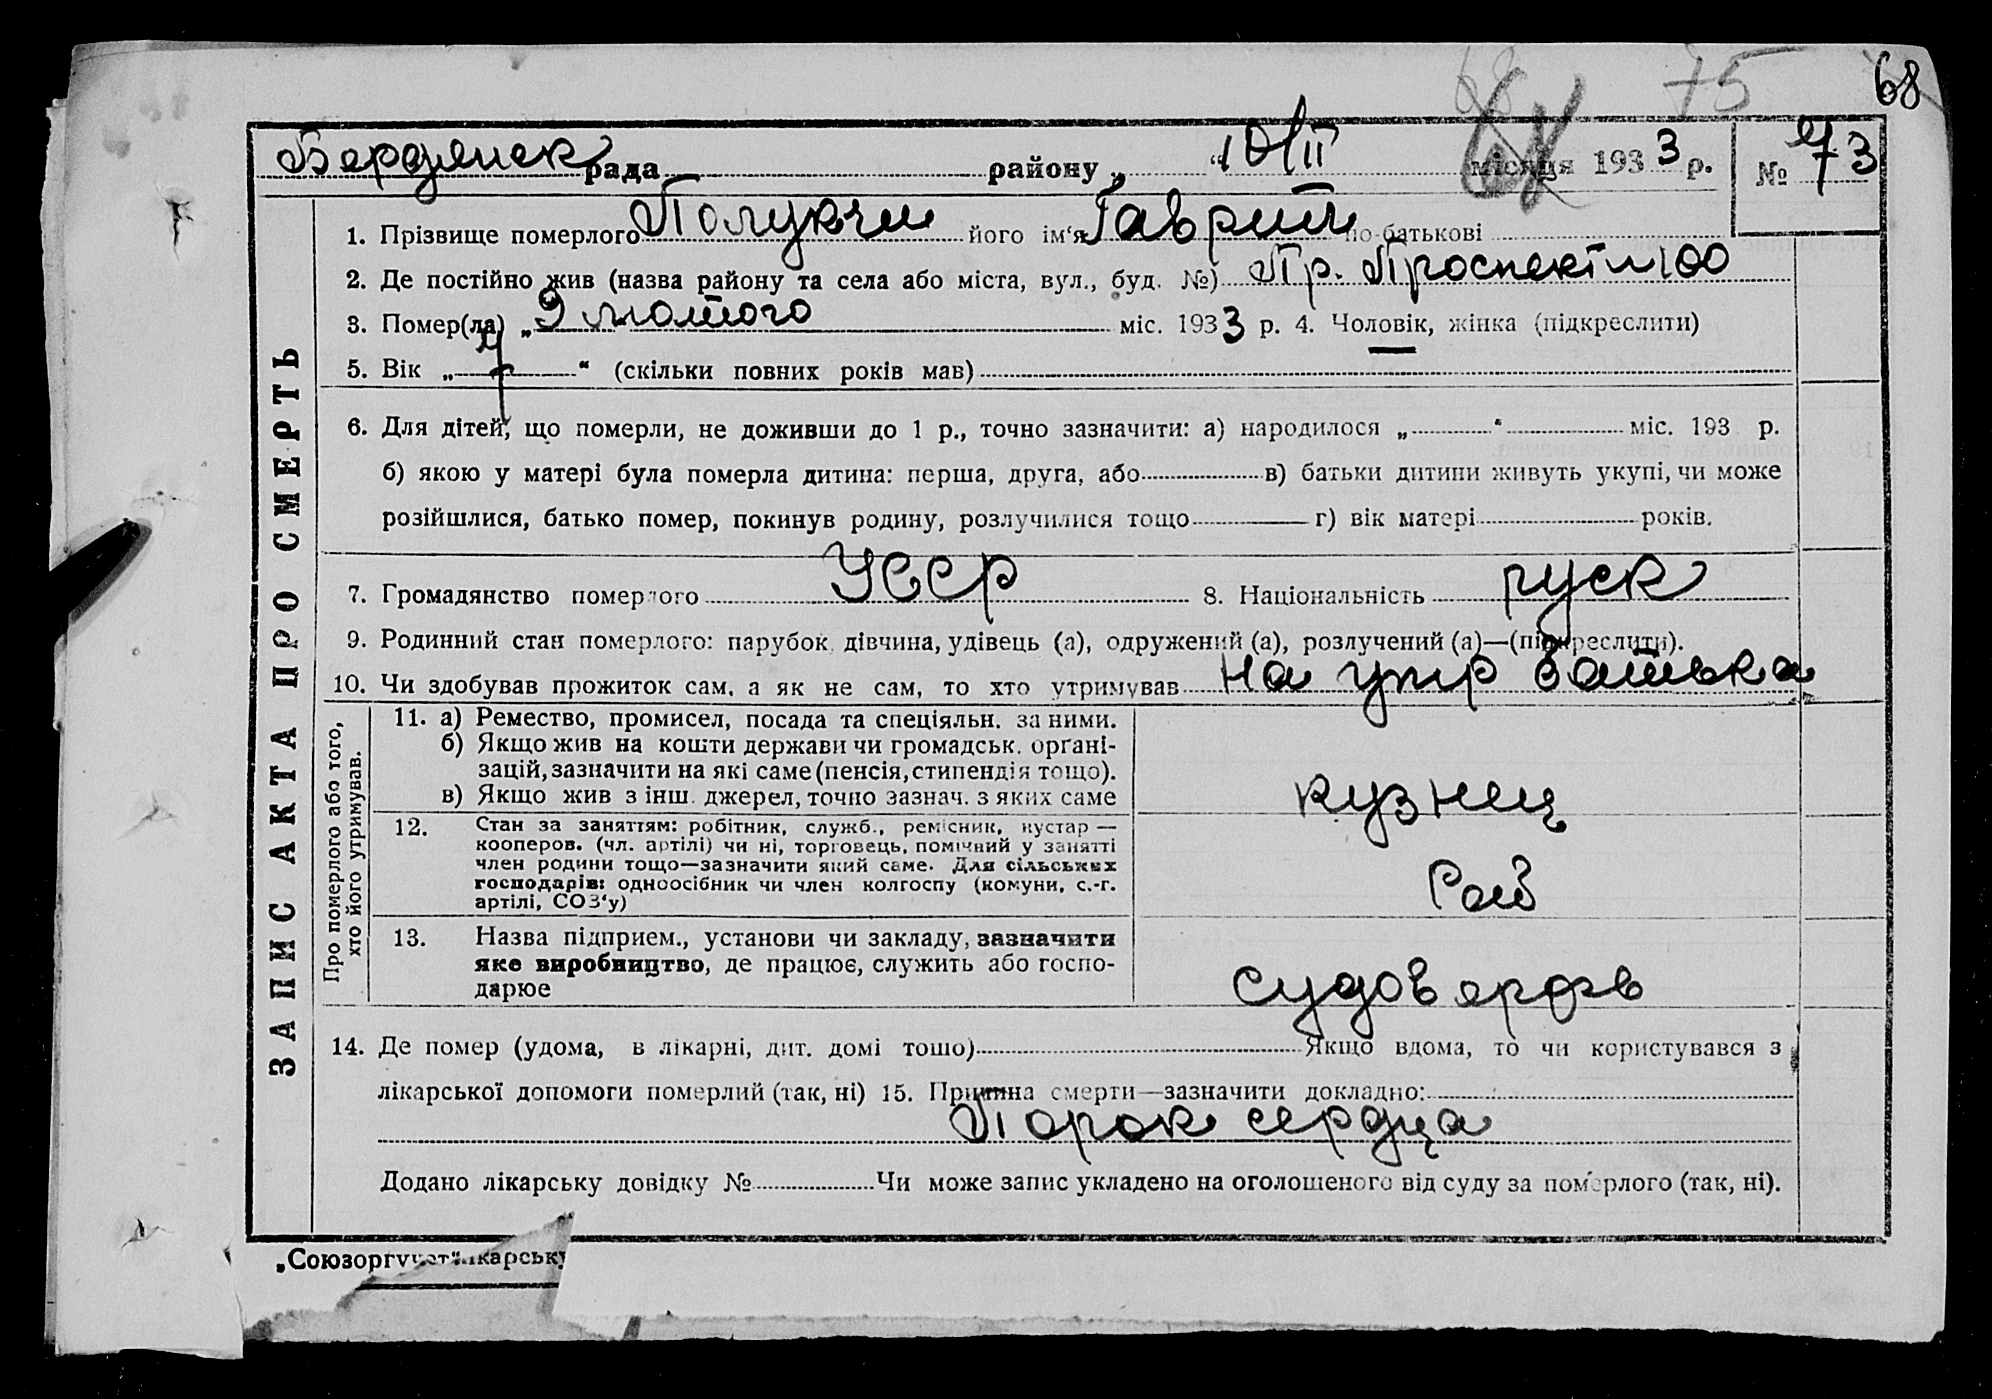 68 75 68
Бердянск рада районуˮ "10/II місяця 1933 р. № 73
ЗАПИС АКТА ПРО СМЕРТЬ
1. Прізвище померлого Полукчи його ім'я Гаврил по-батькові
2. Де постійно жив (назва району та села або міста, вул., буд. №) Пр. Проспект 100
3. Помер(ла) „9 лютого міс. 1933 р. 4. Чоловік, жінка (підкреслити)
5. Вік „ “ (скільки повних років мав)
6. Для дітей, що померли, не доживши до 1 р., точно зазначити: а) народилося „ “ міс. 193 р.
б) якою у матері була померла дитина: перша, друга, або в) батьки дитини живуть укупі, чи може
розійшлися, батько помер, покинув родину, розлучилися тощо г) вік матері років.
7. Громадянство померлого УССР 8. Національність руск
9. Родинний стан померлого: парубок, дівчина, удівець (а), одружений (а), розлучений (а)—(підкреслити).
10. Чи здобував прожиток сам, а як не сам, то хто утримував на утр батька
Про померлого або того,
хто його утримував.
11. а) Ремество, промисел, посада та спеціяльн. за ними.
б) Якщо жив на кошти держави чи громадськ. органі-
зацій, зазначити на які саме (пенсія, стипендія тощо).
в) Якщо жив з інш. джерел, точно зазнач. з яких саме
кузнец
12. Стан за заняттям: робітник, служб., ремісник, кустар —
кооперов. (чл. артілі) чи ні, торговець, помічний у занятті
член родини тощо—зазначити який саме. Для сільських
господарів: одноосібник чи член колгоспу (комуни, с.-г.
артілі, СОЗ'у)
Раб
13. Назва підприєм., установи чи закладу, зазначити
яке виробництво, де працює, служить або госпо-
дарює
судоверфь
14. Де помер (удома, в лікарні, дит. домі тощо) Якщо вдома, то чи користувався з
лікарської допомоги померлий (так, ні) 15. Причина смерти—зазначити докладно:
Порок сердца
Додано лікарську довідку № Чи може запис укладено на оголошеного від суду за померлого (так, ні).
„Союзоргучет“ лікарську